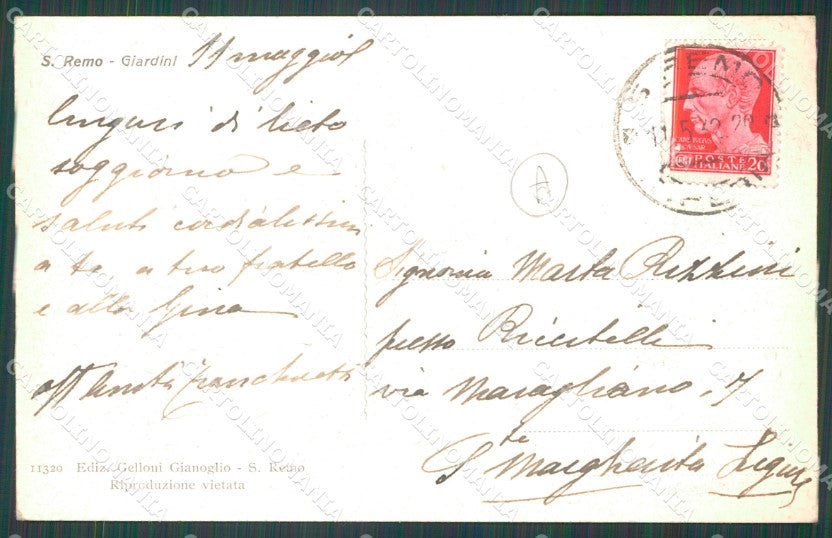 S. Remo - Giardini
11 maggio
Auguri di lieto
soggiorno e
saluti cordialissimi
a te, a tuo fratello
e alla Gina
aff Anita
11320 Ediz. Gelloni Gianoglio - S. Remo
Riproduzione vietata
A
S. REMO
11.5.32
POSTE
ITALIANE
CENT 20
Signorina Marta Rizzini
presso Ricitelli
via Maragliano, 7
S.te Margherita Ligure
CARTOLINOMANIA